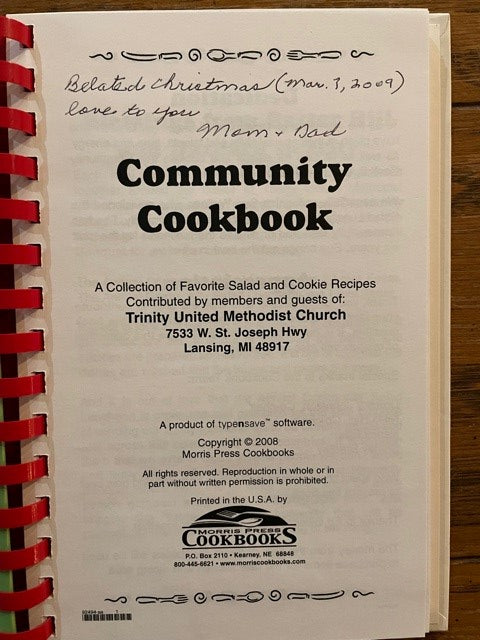 Belated Christmas (Mar. 7, 2009)
love to you
Mom + Dad
Community
Cookbook
A Collection of Favorite Salad and Cookie Recipes
Contributed by members and guests of:
Trinity United Methodist Church
7533 W. St. Joseph Hwy
Lansing, MI 48917
A product of typensave™ software.
Copyright © 2008
Morris Press Cookbooks
All rights reserved. Reproduction in whole or in
part without written permission is prohibited.
Printed in the U.S.A. by
MORRIS PRESS
COOKBOOKS
P.O. Box 2110 • Kearney, NE 68848
800-445-6621 • www.morriscookbooks.com